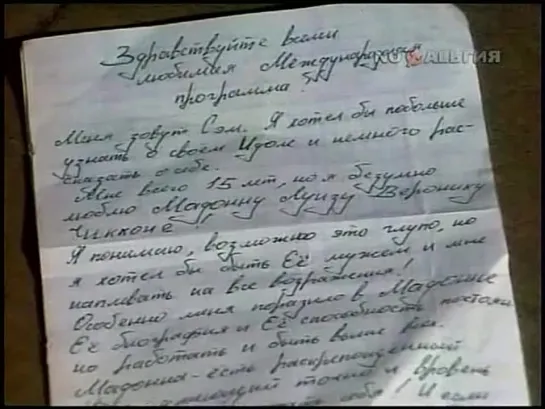 НОСТАЛЬГИЯ
Здравствуйте всеми
любимая Международная
программа!
Меня зовут Сэм. Я хотел бы побольше
узнать о своём Идоле и немного рас-
сказать о себе.
Мне всего 15 лет, но я безумно
люблю Мадонну Луизу Веронику
Чикконе!
Я понимаю, возможно это глупо, но
я хотел бы быть Её мужем и мне
наплевать на все возражения!
Особенно меня поразило в Мадонне
Её биография и Её способность постоян
но работать и быть выше всех.
Мадонна - есть раскрепощённый
точно и вровень
себя! И если